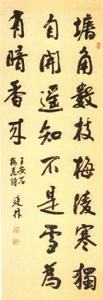 墙角數枝梅陵寒獨
自開遥知不是雪為
有暗香来
王安石
梅花詩